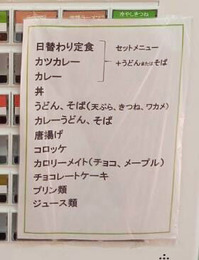 冷やしきつね
日替わり定食
カツカレー
カレー
セットメニュー
+うどんまたはそば
丼
うどん、そば(天ぷら、きつね、ワカメ)
カレーうどん、そば
唐揚げ
コロッケ
カロリーメイト(チョコ、メープル)
チョコレートケーキ
プリン類
ジュース類